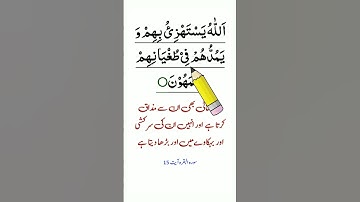 اَللّٰهُ یَسْتَهْزِئُ بِهِمْ وَ
یَمُدُّهُمْ فِیْ طُغْیَانِهِمْ
مَهُوْنَ○
بھی ان سے مذاق
کرتا ہے اور انہیں ان کی سرکشی
اور بہکاوے میں اور بڑھا دیتا ہے
سورہ البقرہ آیت 15